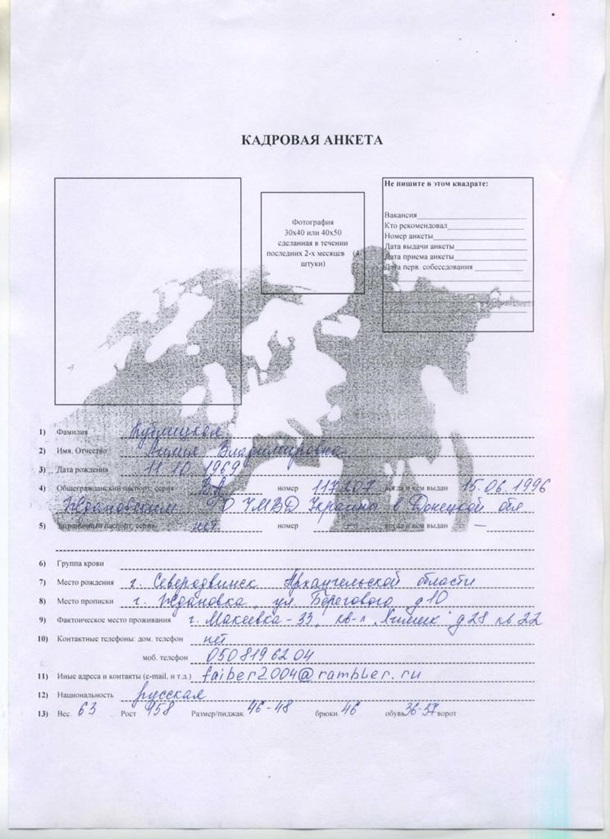 КАДРОВАЯ АНКЕТА
Не пишите в этом квадрате:
Фотография
30х40 или 40х50
сделанная в течении
последних 2-х месяцев (4
штуки)
Вакансия
Кто рекомендовал
Номер анкеты
Дата выдачи анкеты
Дата приема анкеты
Дата перв. собеседования
1) Фамилия
2) Имя, Отчество Лилия Владимировна
3) Дата рождения 11.10.1969
4) Общегражданский паспорт: серия ВА номер когда и кем выдан 15.06.1996
Ждановским УМВД Украины в Донецкой обл
5) Заграничный паспорт: серия нет номер — когда и кем выдан —
6) Группа крови
7) Место рождения г. Северодвинск Архангельской области
8) Место прописки г. Ждановка ул. Берегового д 10
9) Фактическое место проживания г. Макеевка - 33, кв-л "Химик" д 28 кв 22
10) Контактные телефоны: дом. телефон нет
моб. телефон 050 819 62 04
11) Иные адреса и контакты (e-mail, и т.д.) faiber2004@rambler.ru
12) Национальность русская
13) Вес 63 Рост Размер/пиджак 46-48 брюки 46 обувь 36-37 ворот